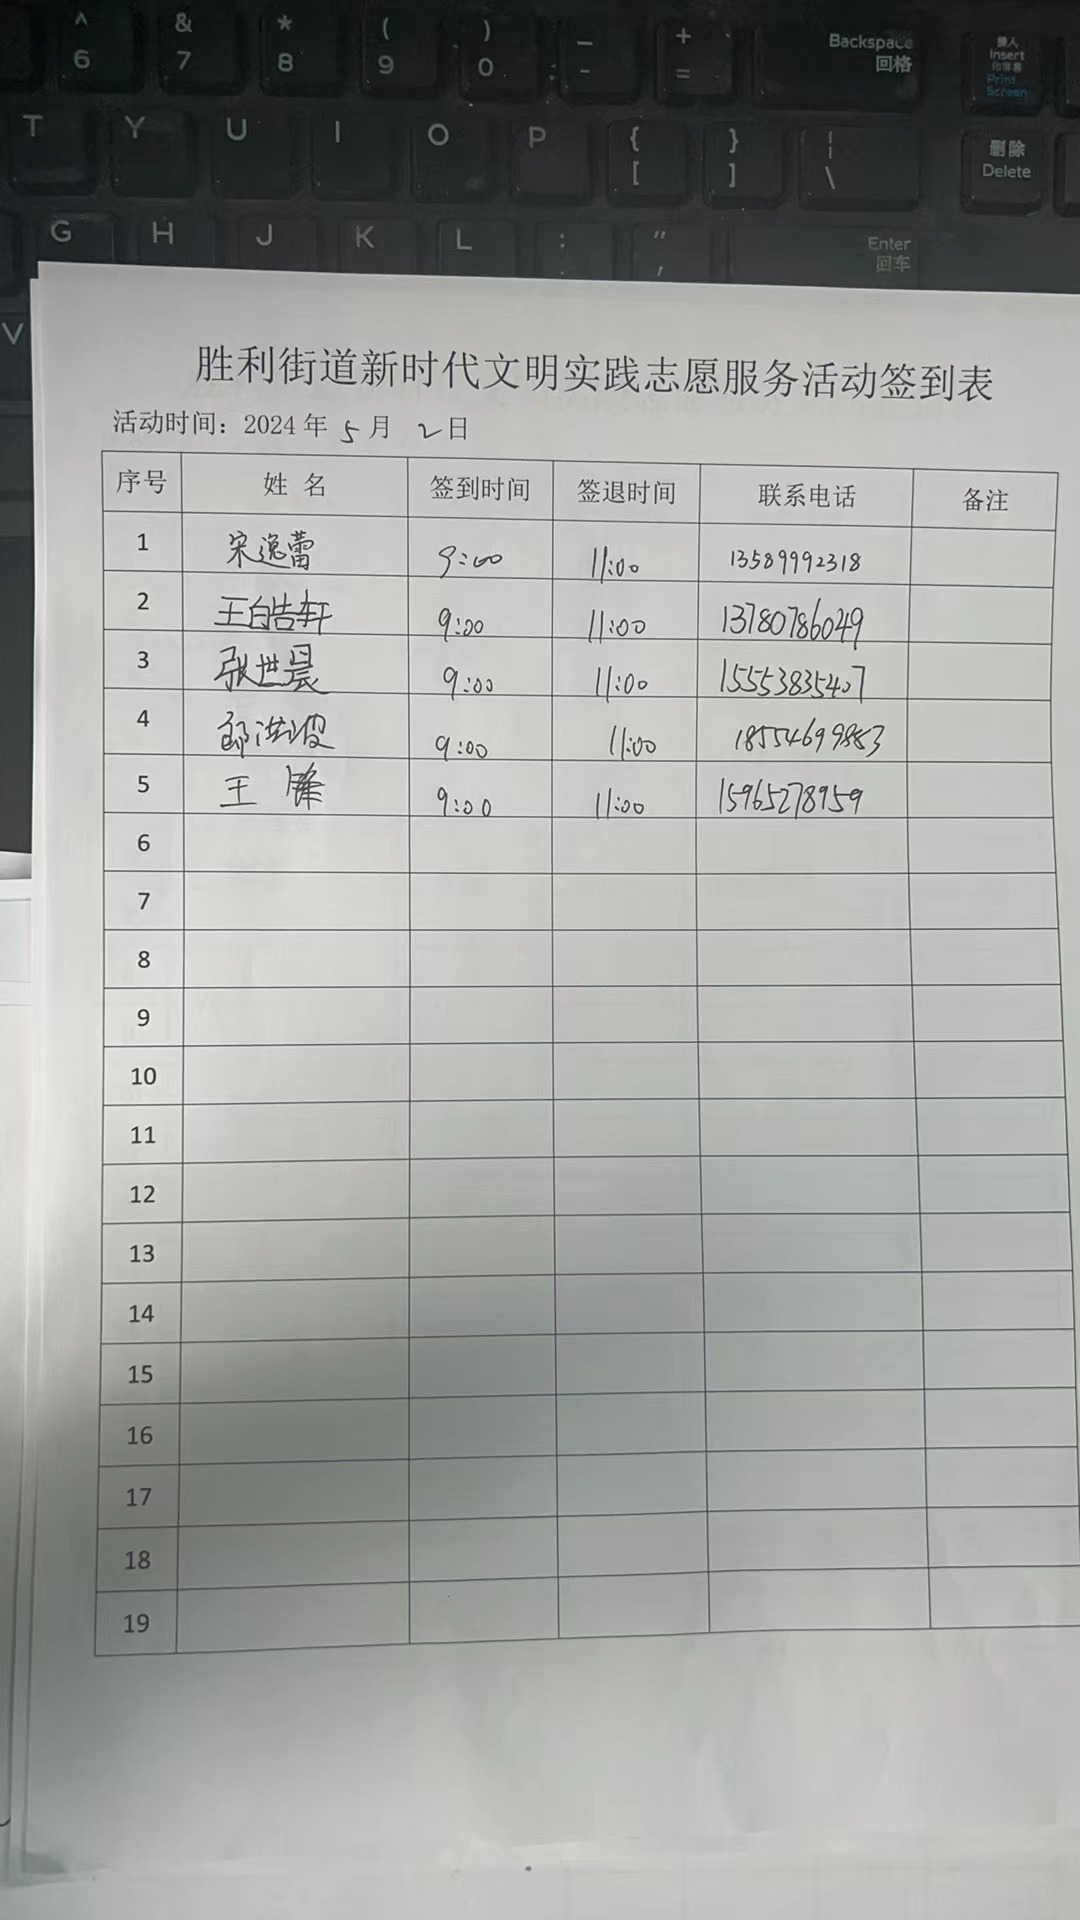 ^ & * ( ) _ + Backspace 插入
6 7 8 9 0 - = 回格 Insert
印屏幕
Print
Screen
T Y U I O P { } | 删除
[ ] \ Delete
G H J K L : " Enter
; ' 回车
V
胜利街道新时代文明实践志愿服务活动签到表
活动时间：2024 年 5 月 2 日
序号 姓 名 签到时间 签退时间 联系电话 备注
1 宋逸蕾 9:00 11:00 13589992318
2 王皓轩 9:00 11:00 13780786049
3 张世晨 9:00 11:00 15553835407
4 邵洪波 9:00 11:00 18554699883
5 王 锋 9:00 11:00 15965278959
6
7
8
9
10
11
12
13
14
15
16
17
18
19